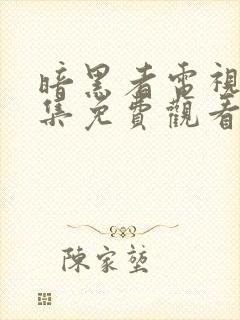 暗黑者電視
集免費觀看
陳家堃